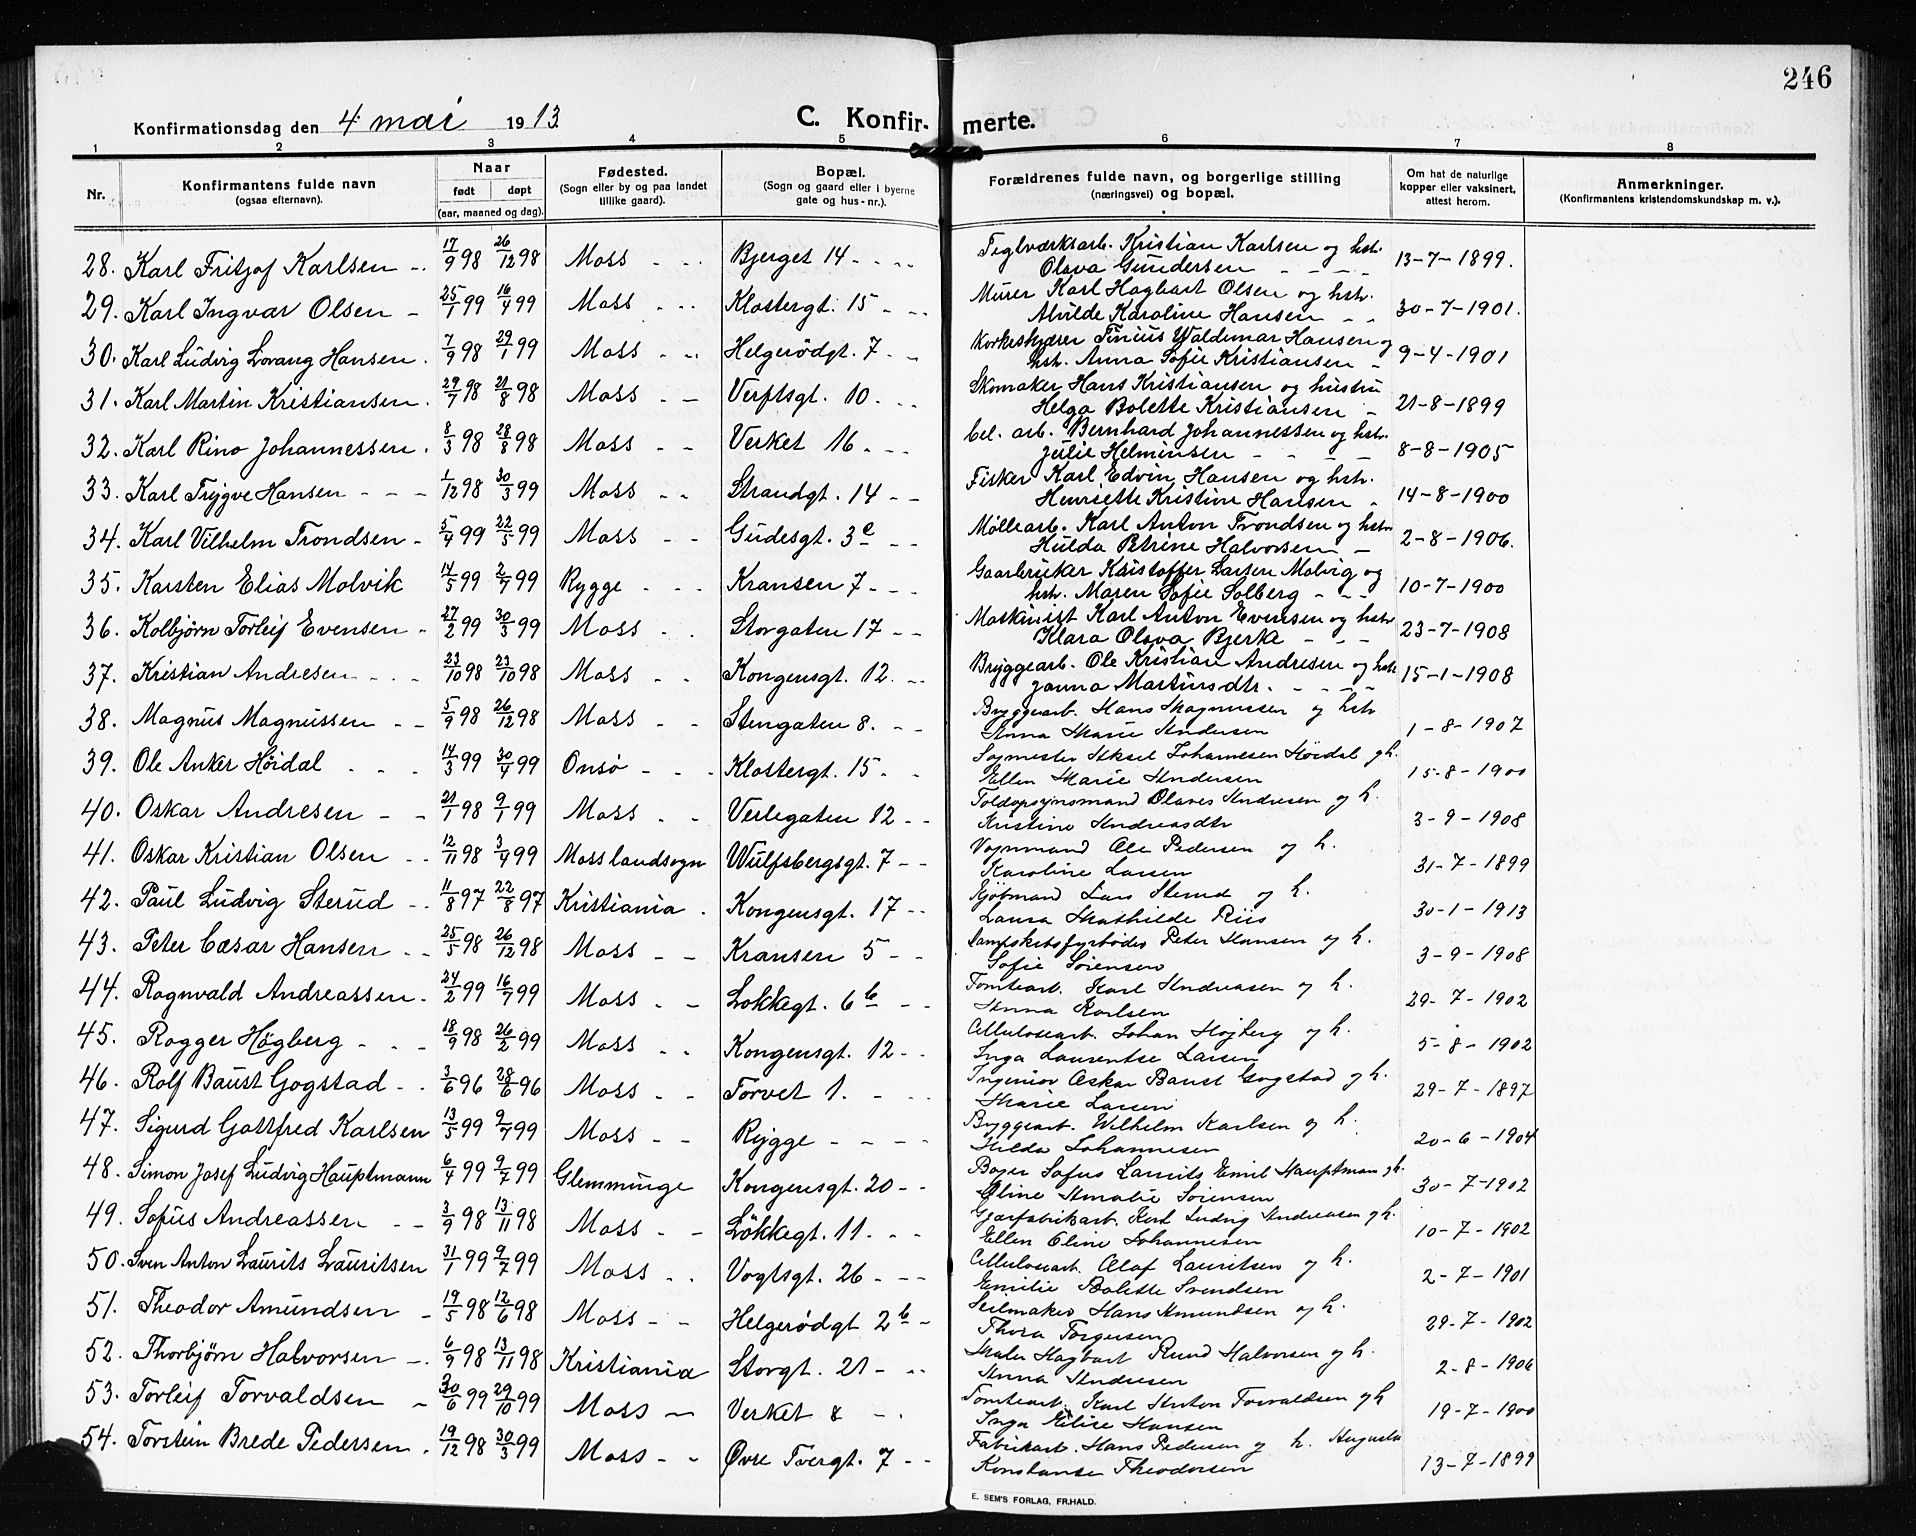 246
Konfirmationsdag den 4 mai 1913 C. Konfir- merte.
1 2 3 4 5 6 7 8
Nr. Konfirmantens fulde navn (ogsaa efternavn). Naar født døpt (aar, maaned og dag). Fødested. (Sogn eller by og paa landet tillike gaard). Bopæl. (Sogn og gaard eller i byerne gate og hus-nr.). Forældrenes fulde navn, og borgerlige stilling (næringsvei) og bopæl. Om hat de naturlige kopper eller vaksinert, attest herom. Anmerkninger. (Konfirmantens kristendomskundskap m. v.).
28. Karl Fritjof Karlsen 17/9 98 26/12 98 Moss Bjerget 14 Teglværksarb. Kristian Karlsen og hst. Olava Gundersen 13-7-1899.
29. Karl Ingvar Olsen 25/1 99 16/4 99 Moss Klostergt. 15 Murer Karl Hagbart Olsen og hstr. Alvilde Karoline Hansen 30-7-1901.
30. Karl Ludvig Lorang Hansen 7/9 98 29/1 99 Moss Helgerødgt. 7 Korkeskjærer Tinius Waldemar Hansen og hst. Anna Sofie Kristiansen 9-4-1901
31. Karl Martin Kristiansen 29/7 98 21/8 98 Moss Verftsgt. 10. Skomaker Hans Kristiansen og hustru Helga Bolette Kristiansen 21-8-1899
32. Karl Rino Johannessen 8/3 98 28/8 98 Moss Verket 16 Cel. arb. Bernhard Johannessen og hstr. Julie Helminsen 8-8-1905
33. Karl Trygve Hansen 1/12 98 30/3 99 Moss Strandgt. 14 Fisker Karl Edvin Hansen og hstr. Henriette Kristine Hansen 14-8-1900
34. Karl Vilhelm Trondsen 5/4 99 22/5 99 Moss Gudesgt. 3c Møllearb. Karl Anton Trondsen og hstr Hulda Petrine Halvorsen 2-8-1906.
35. Karsten Elias Molvik 14/5 99 2/7 99 Rygge Kransen 7 Gaarbruker Kristoffer Larsen Molvig og hst. Maren Sofie Solberg 10-7-1900
36. Kolbjørn Torleif Evensen 27/2 99 30/3 99 Moss Storgaten 17 Maskinist Karl Anton Evensen og hstr Klara Olava Bjerke 23-7-1908
37. Kristian Andresen 23/10 98 23/10 98 Moss Kongensgt. 12. Bryggearb. Ole Kristian Andresen og hstr Janna Martinsdtr. 15-1-1908
38. Magnus Magnussen 5/9 98 26/12 98 Moss Stengaten 8. Bryggearb. Hans Magnussen og hstr Anna Marie Andersen 1-8-1907
39. Ole Anker Høidal 14/3 99 30/4 99 Onsø Klostergt. 15 Sagmester Aksel Johannesen Høidal og h. Ellen Marie Andersen 15-8-1900
40. Oskar Andresen 21/1 98 9/1 99 Moss Verlegaten 12 Toldopsynsmand Olaves Andresen og h. Kristine Andreasdtr 3-9-1908
41. Oskar Kristian Olsen 12/11 98 3/4 99 Moss landsogn Wulfsbergsgt. 7 Vognmand Ole Pedersen og h. Karoline Larsen 31-7-1899
42. Paul Ludvig Sterud 11/8 97 22/8 97 Kristiania Kongensgt. 17 Kjøbmand Lars Sterud og h. Laura Mathilde Riis 30-1-1913
43. Peter Cæsar Hansen 25/5 98 26/12 98 Moss Kransen 5 Dampskibsfyrbøder Peter Hansen og h. Sofie Sørensen 3-9-1908
44. Ragnvald Andreassen 24/2 99 16/7 99 Moss Løkkegt. 6b Tomtearb. Karl Andreasen og h. Anna Karlsen 29-7-1902
45. Ragger Høgberg 18/9 98 26/2 99 Moss Kongensgt. 12 Cellulosearb. Johan Højberg og h. Inga Laurentse Larsen 5-8-1902
46. Rolf Baust Gogstad 3/6 96 28/6 96 Moss Torvet 1. Ingeniør Oskar Baust Gogstad og h. Marie Larsen 29-7-1897
47. Sigurd Gottfred Karlsen 13/5 99 9/7 99 Moss Rygge Bryggearb. Wilhelm Karlsen og h. Hilda Johannesen 20-6-1904
48. Simon Josef Ludvig Hauptmann 6/4 99 9/7 99 Glemminge Kongensgt. 20 Bager Sofus Laurits Emil Hauptman og h. Oline Amalie Sørensen 30-7-1902
49. Sofus Andreassen 3/9 98 13/11 98 Moss Løkkegt. 11. Gjærfabrikarb. Karl Ludvig Andreasen og h. Ellen Oline Johannesen 10-7-1902
50. Sven Anton Laurits Lauritsen 31/1 99 9/7 99 Moss Vogtsgt. 26 Cellulosearb. Olaf Lauritsen og h. Emilie Bolette Svendsen 2-7-1901
51. Theodor Amundsen 19/5 98 12/6 98 Moss Helgerødgt 2b Seilmaker Hans Amundsen og h. Thora Torgersen 29-7-1902
52. Thorbjørn Halvorsen 6/9 98 13/11 98 Kristiania Storgt. 21 Maler Hagbart Rund Halvorsen og h. Anna Andresen 2-8-1906
53. Torleif Torvaldsen 30/6 99 29/10 99 Moss Verket 8 Tomtearb. Karl Anton Torvaldsen og h Inga Elise Hansen 19-7-1900
54. Torstein Brede Pedersen 19/12 98 30/3 99 Moss Øvre Tvergt. 7 Fabrikarb. Hans Pedersen og h. Augusta Konstanse Theodorsen 13-7-1899
E. SEM'S FORLAG, FR.HALD.